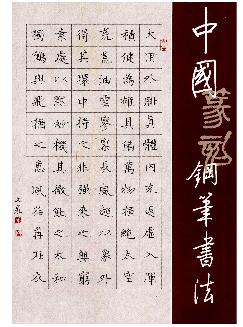 中國鋼筆書法
篆刻
大用外腓真體內充返虛入渾
積健為雄具備萬物橫絕太空
荒荒油雲寥寥長風超以象外
得其環中持之非強來之無窮
素處以默妙機其微飲之太和
獨鶴與飛猶之惠風荏苒在衣